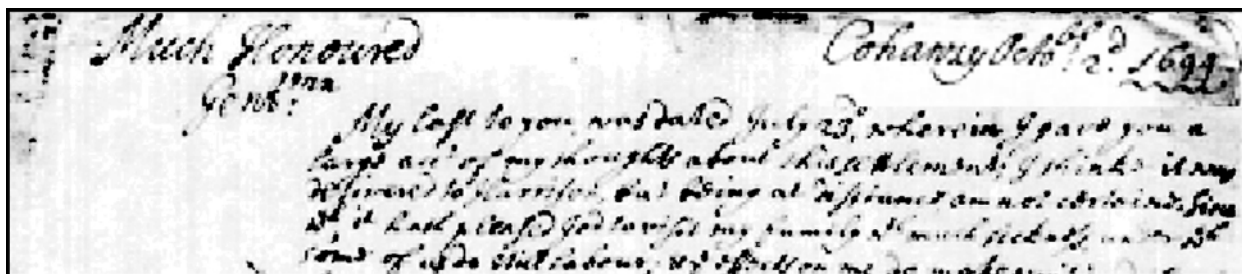 Much Honoured Cohanzy Octobr. 2d. 1694
Gentlmn
My last to you was dated July 23d, wherein I gave you a
large acct of my thoughts about this settlement, I think it was
delivered to but being at distance am not certain. Since
wch it hath pleased God to visit my family wth much sickness under wch
some of us do still labour,